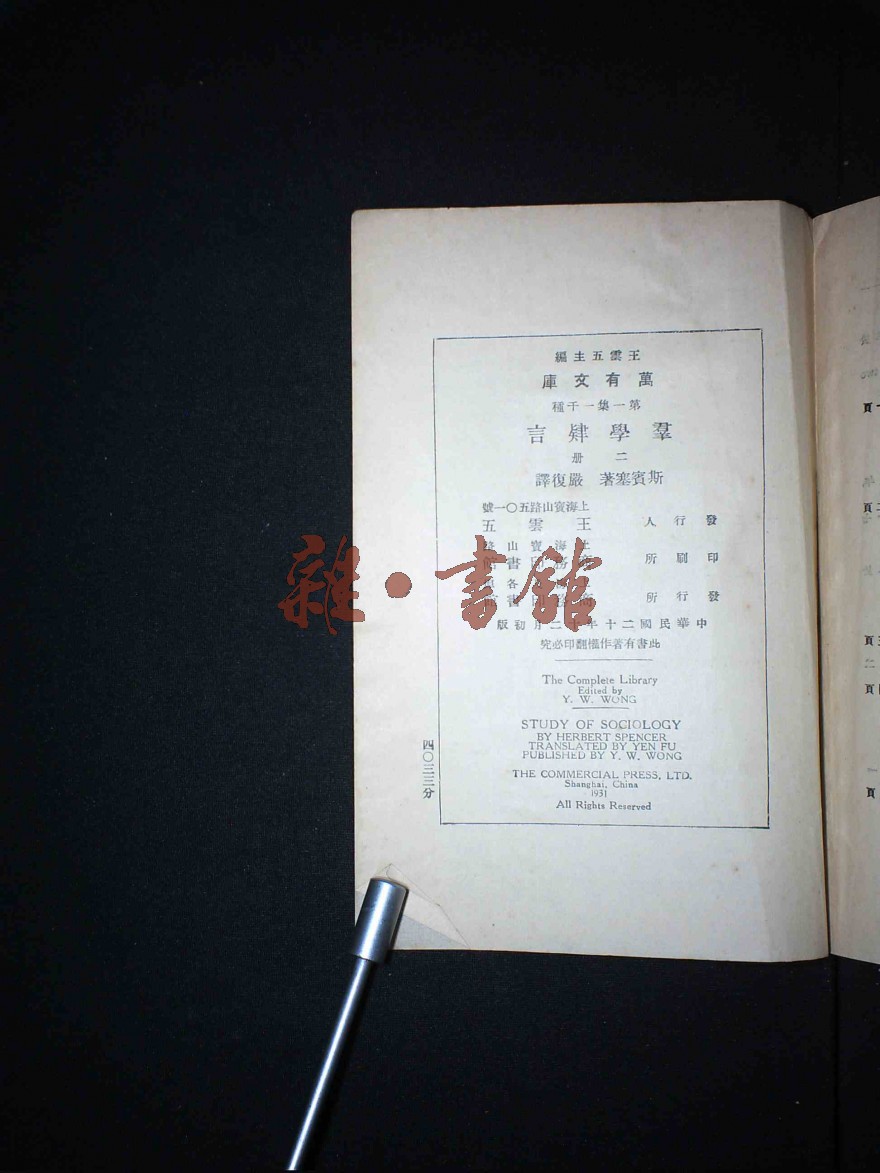 王雲五主編
萬有文庫
第一集一千種
羣學肄言
二册
斯賓塞著 嚴復譯
上海寶山路五〇一號
發行人 王雲五
上海寶山路
印刷所 商務印書館
各
發行所 商務印書館
中華民國二十年十二月初版
此書有著作權翻印必究
The Complete Library
Edited by
Y. W. WONG
STUDY OF SOCIOLOGY
BY HERBERT SPENCER
TRANSLATED BY YEN FU
PUBLISHED BY Y. W. WONG
THE COMMERCIAL PRESS, LTD.
Shanghai, China
1931
All Rights Reserved
四〇三三分
雜·書館
頁
頁
頁
頁
頁